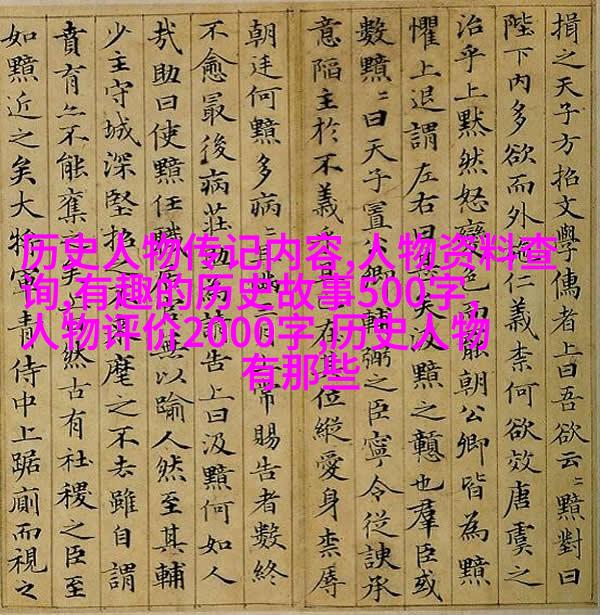 揖之天子方招文學儒者上曰吾欲云〻黯對曰
陛下內多欲而外施仁義柰何欲效唐虞之
治乎上黙然怒變色而罷朝公卿皆為黯
懼上退謂左右曰甚矣汲黯之戇也羣臣或
數黯〻曰天子置公卿輔弼之臣寧令從諛承
意陷主於不義乎且已在其位縱愛身柰辱
朝廷何黯多病〻且滿三月上常賜告者數終
不愈最後病莊助為請告上曰汲黯何如人
㢤助曰使黯任職居官無以踰人然至其輔
少主守城深堅招之不来麾之不去雖自謂
賁育亦不能奪之矣上曰然古有社稷之臣至
如黯近之矣大將軍青侍中上踞廁而視之
历史人物传记内容,人物资料查
询,有趣的历史故事500字,
人物评价2000字,历史人物
有那些